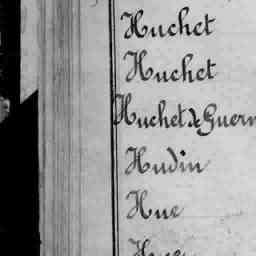 Huchet
Huchet
Huchet de Guern
Hudin
Hue
Hue